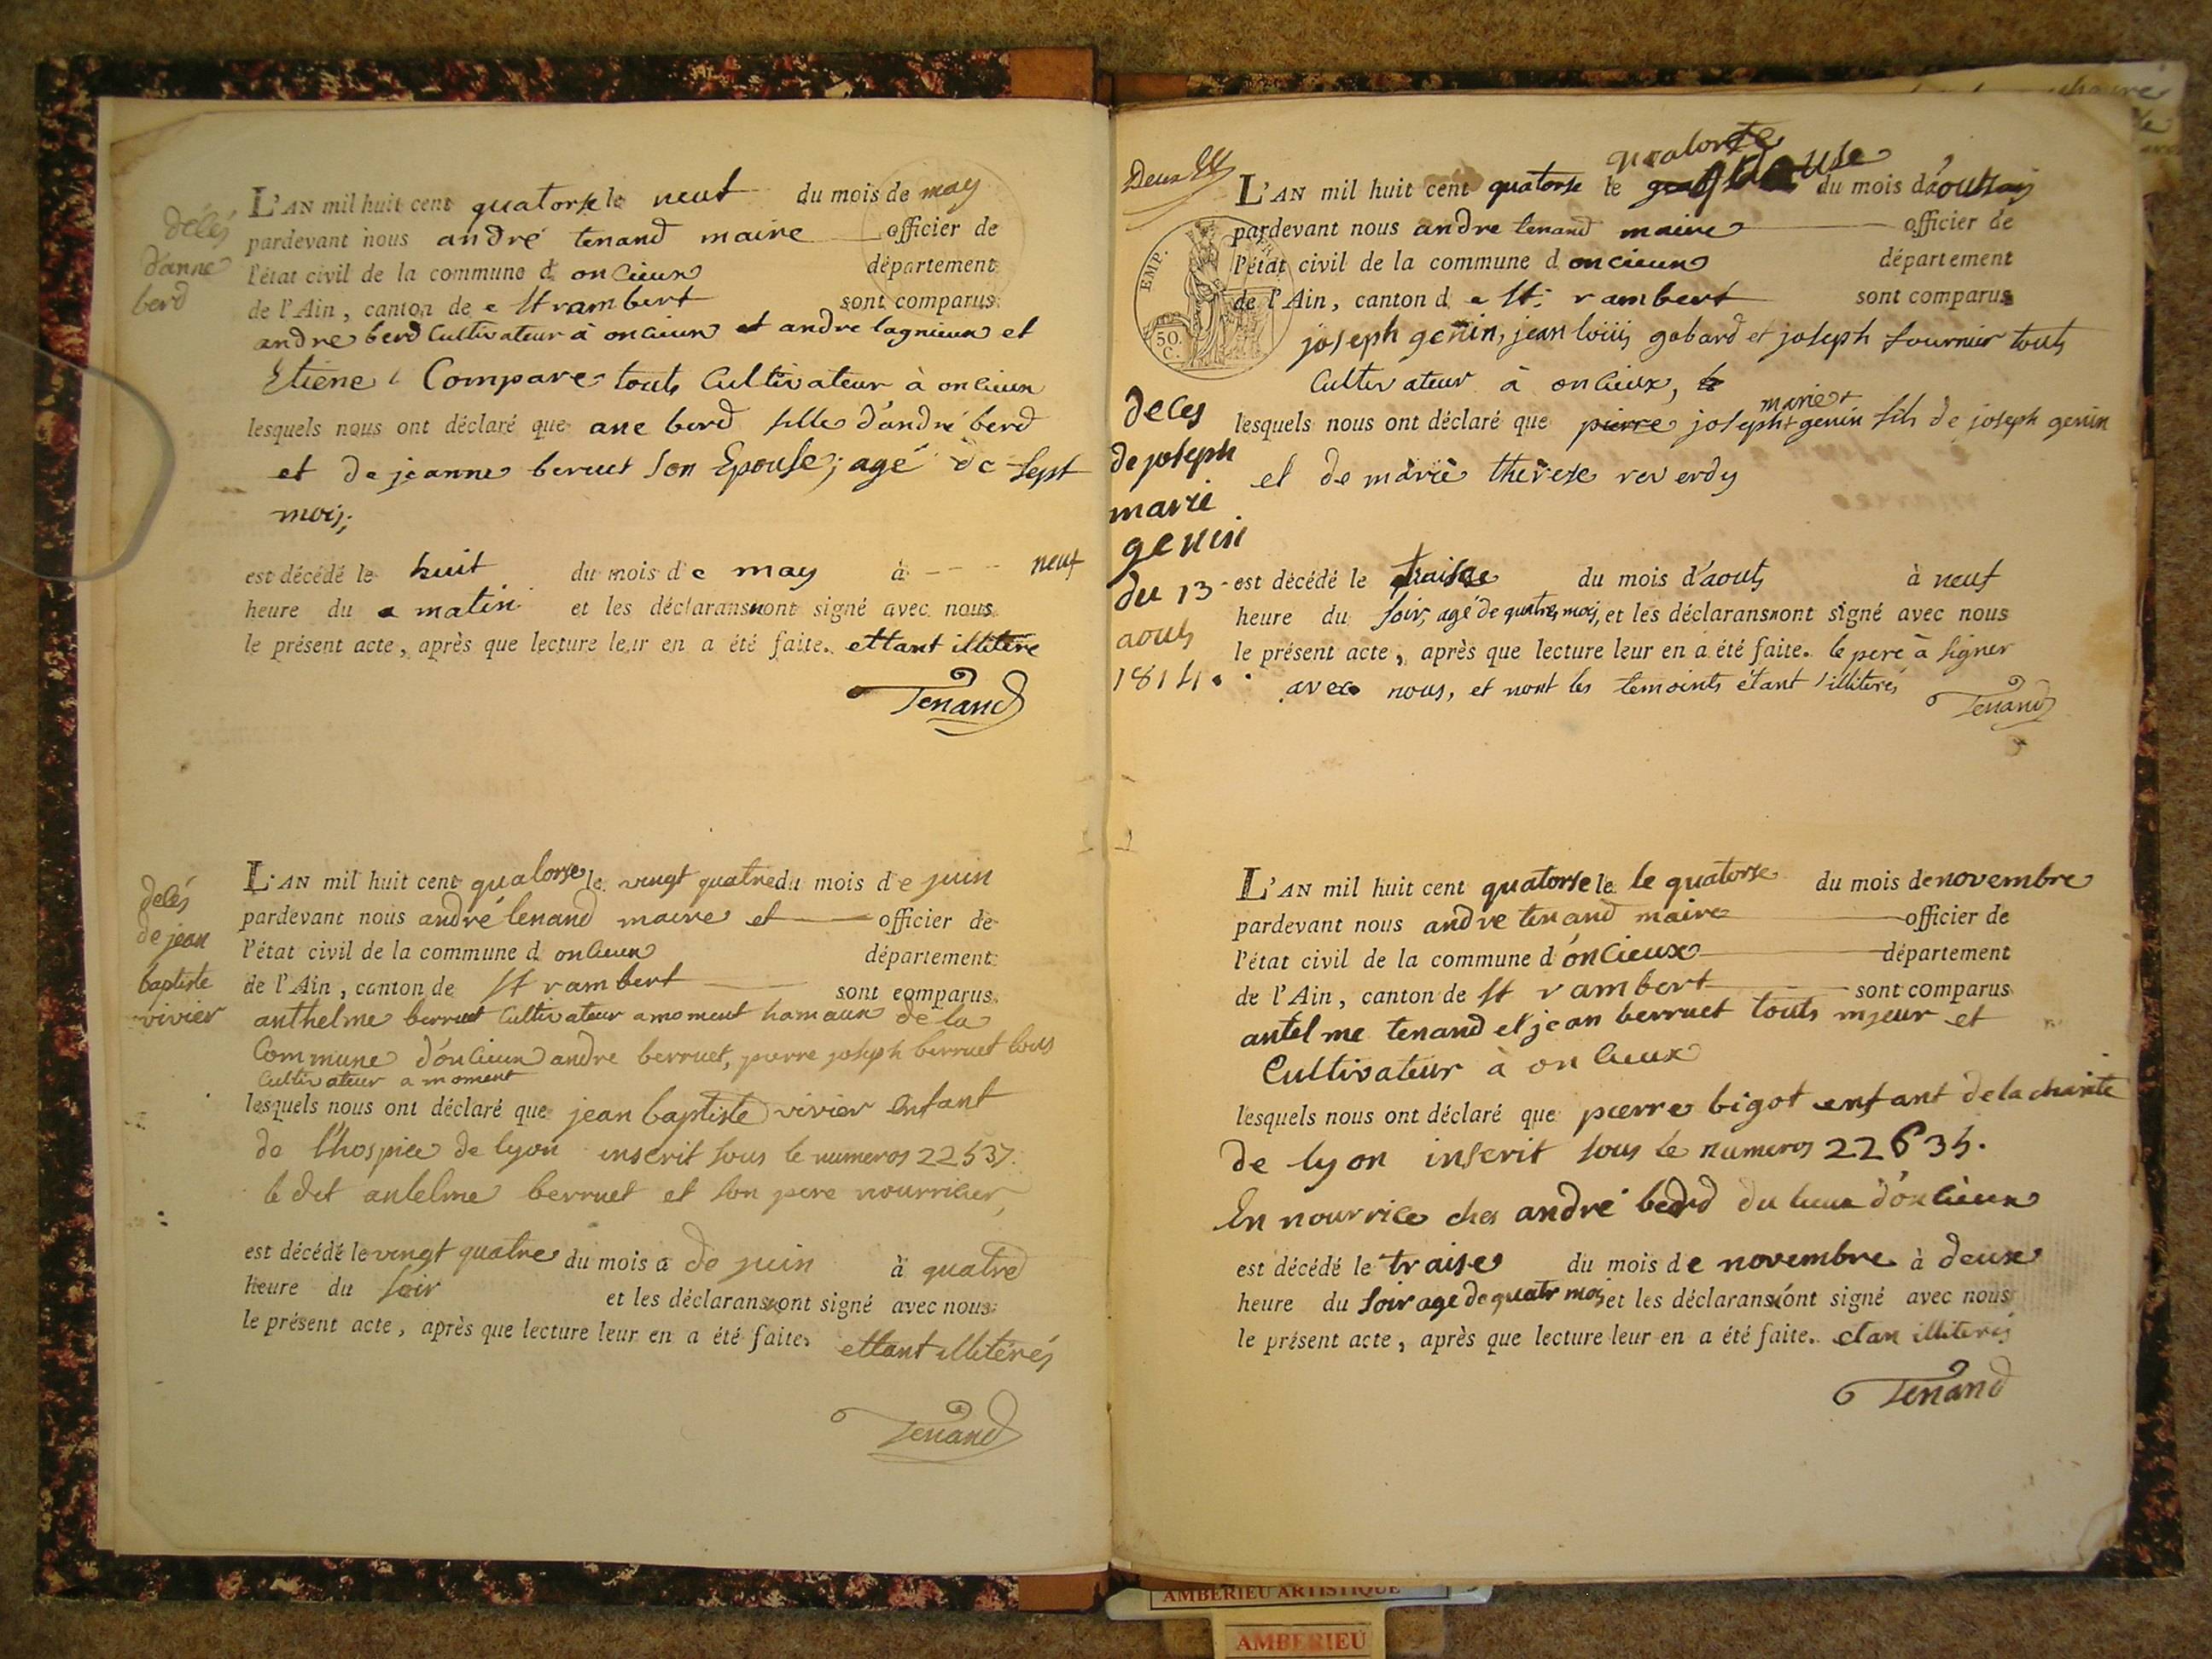 décés
d'anne
berd
L'AN mil huit cent quatorse le neuf du mois de may
pardevant nous andré tenand maire officier de
l'état civil de la commune d oncieux département
de l'Ain, canton de e St rambert sont comparus
andre berd Cultivateur à oncieux et andre lagnieux et
Etiene Compare touts Cultivateur à oncieux
lesquels nous ont déclaré que ane berd fille d'andré berd
et de jeanne berruet son Epouse; agé de sept
mois;
est décédé le huit du mois d e may à neuf
heure du matin et les déclarans nont signé avec nous
le présent acte, après que lecture leur en a été faite. ettant illitére
Tenand
delés
de jean
baptiste
vivier
L'AN mil huit cent quatorse le vingt quatre du mois d e juin
pardevant nous andré tenand maire et officier de
l'état civil de la commune d oncieux département
de l'Ain, canton de St rambert sont comparus
anthelme berruet Cultivateur a moment hamaux de la
Commune d'oncieux andre berruet, pierre joseph berruet tous
Cultivateur a moment
lesquels nous ont déclaré que jean baptiste vivier enfant
de l'hospice de lyon inscrit sous le numeros 22537.
le dit antelme berruet et son pere nourricier,
est décédé le vingt quatre du mois de juin à quatre
heure du soir et les déclarans nont signé avec nous
le présent acte, après que lecture leur en a été faite. ettant illitérés
Tenand
Deux
quatorze
L'AN mil huit cent quatorse le du mois d'aoust
EMP.
50.
C.
pardevant nous andre tenand maire officier de
l'état civil de la commune d oncieux département
de l'Ain, canton d e St. rambert sont comparus
joseph genin, jean louis gobard et joseph fournier touts
Cultivateur à oncieux,
deces
de joseph
marie
genin
du 13
aouts
1814.
marie+
lesquels nous ont déclaré que pierre joseph+ genin fils de joseph genin
et de marie therese reverdy
est décédé le traise du mois d'aouts à neuf
heure du soir, agé de quatres mois, et les déclarans nont signé avec nous
le présent acte, après que lecture leur en a été faite. le pere à signer
avec nous, et nont les temoints étant illiterés
Tenand
L'AN mil huit cent quatorse le le quatorse du mois de novembre
pardevant nous andre tenand maire officier de
l'état civil de la commune d'óncieux département
de l'Ain, canton de St rambert sont comparus
antelme tenand et jean berruet touts mjeur et
Cultivateur à oncieux
lesquels nous ont déclaré que pierre bigot enfant de la charite
de lyon inscrit sous le numeros
En nourrice ches andré berd du lieux d'oncieux
est décédé le traise du mois d e novembre à deuxe
heure du soir age de quatr mois et les déclarans nont signé avec nous
le présent acte, après que lecture leur en a été faite. etan illiterés
Tenand
AMBERIEU ARTISTIQUE
AMBERIEU